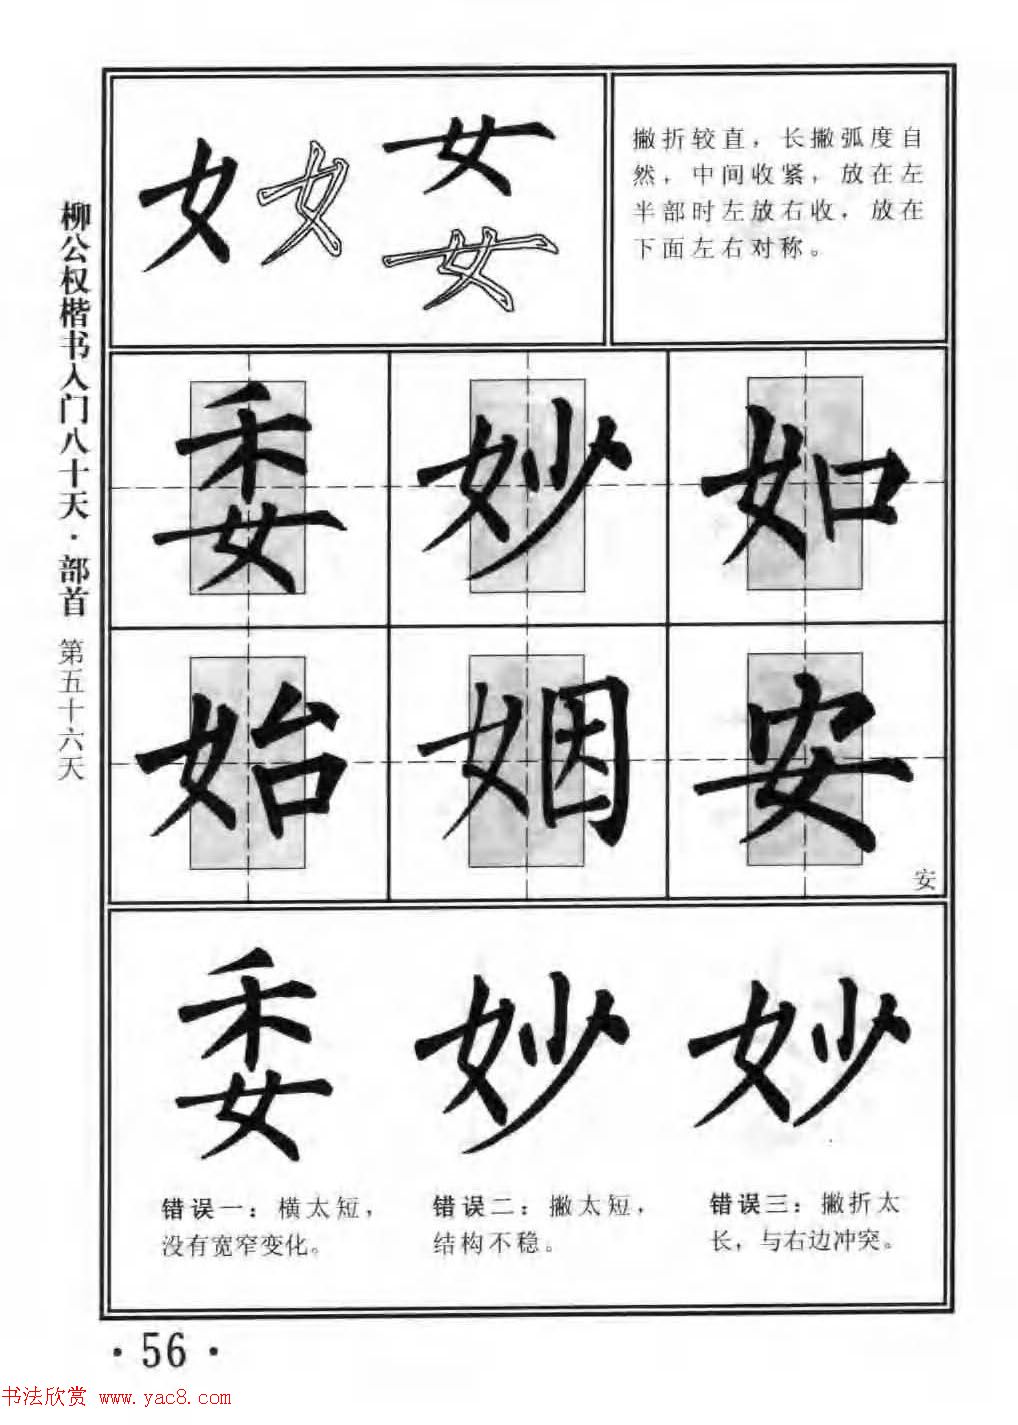 柳公权楷书入门八十天·部首 第五十六天
女 女 女
女
撇折较直，长撇弧度自
然，中间收紧，放在左
半部时左放右收，放在
下面左右对称。
委 妙 如
始 姻 安
安
委 妙 妙
错误一：横太短，
没有宽窄变化。
错误二：撇太短，
结构不稳。
错误三：撇折太
长，与右边冲突。
·56·
书法欣赏 www.yac8.com